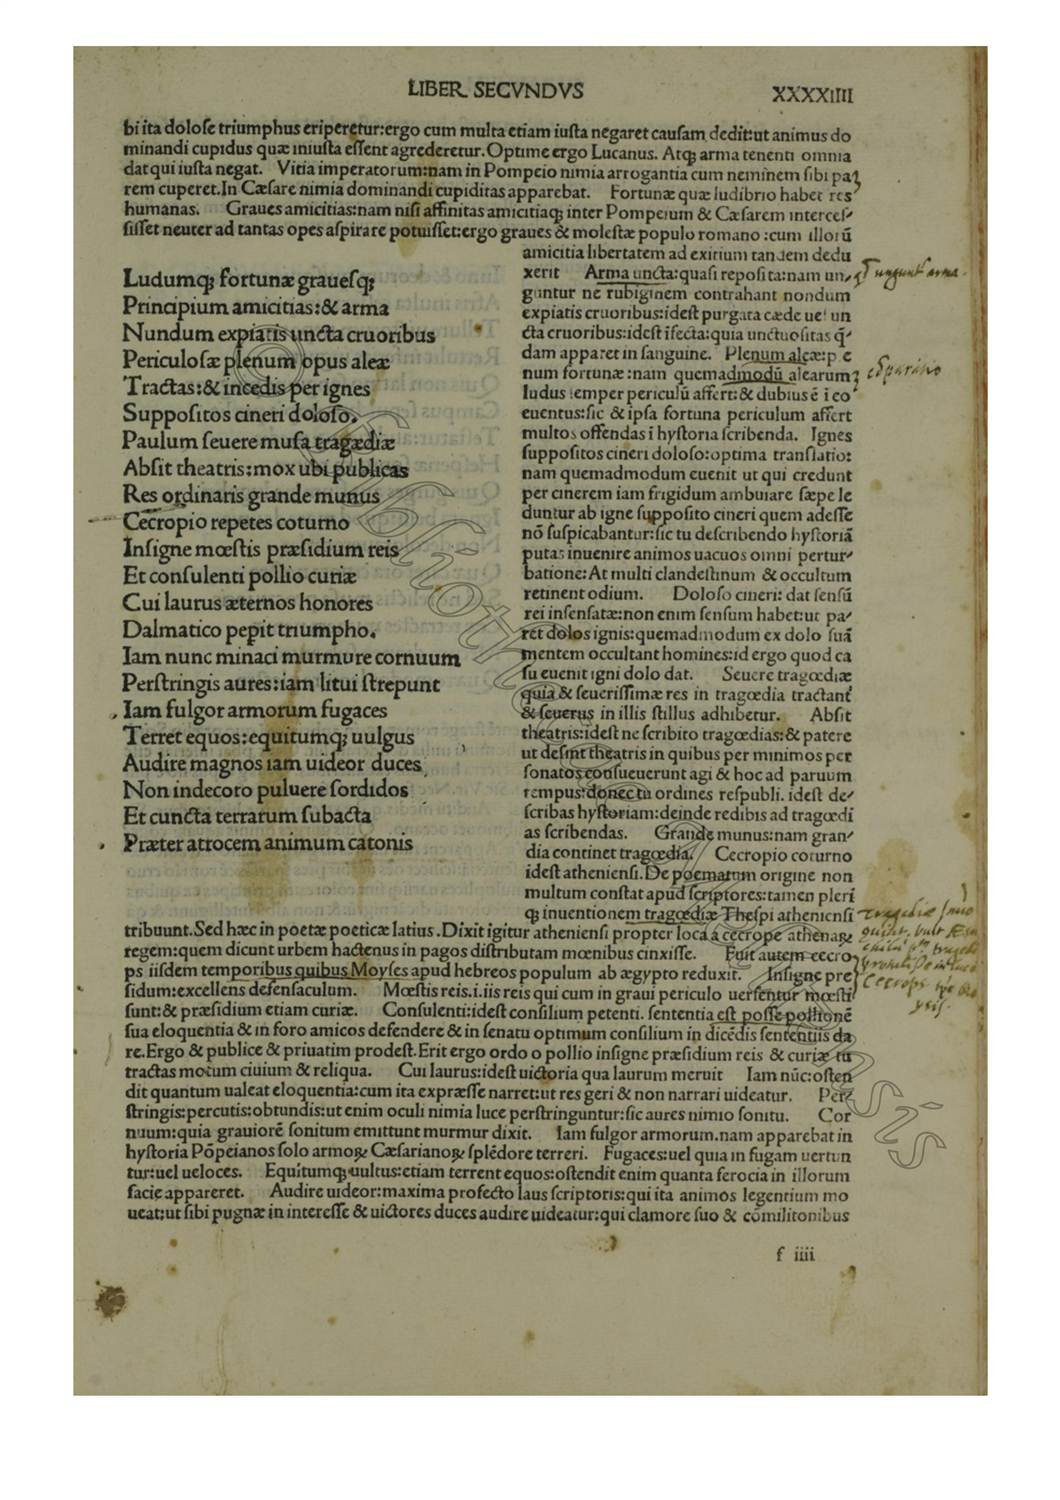 LIBER SECVNDVS
XXXXIIII
bi ita dolose triumphus eriperetur:ergo cum multa etiam iusta negaret causam dedit:ut animus do
minandi cupidus quæ iniusta essent agrederetur. Optime ergo Lucanus. Atq; arma tenenti omnia
dat qui iusta negat. Vitia imperatorum:nam in Pompeio nimia arrogantia cum neminem sibi pa
rem cuperet.In Cæsare nimia dominandi cupiditas apparebat. Fortunæ quæ ludibrio habet res
humanas. Graues amicitias:nam nisi affinitas amicitiaq; inter Pompeium & Cæsarem interces/
sisset neuter ad tantas opes aspirare potuisset:ergo graues & molestæ populo romano :cum illorū
Ludumq; fortunæ grauesq;
Principium amicitias:& arma
Nundum expiatis uncta cruoribus
Periculosæ plenum opus aleæ
Tractas:& incedis per ignes
Suppositos cineri doloso.
Paulum seuere musa tragædiæ
Absit theatris:mox ubi publicas
Res ordinaris grande munus
Cecropio repetes coturno
Insigne mœstis præsidium reis
Et consulenti pollio curiæ
Cui laurus æternos honores
Dalmatico pepit triumpho.
Iam nunc minaci murmure cornuum
Perstringis aures:iam litui strepunt
Iam fulgor armorum fugaces
Terret equos:equitumq; uulgus
Audire magnos iam uideor duces
Non indecoro puluere sordidos
Et cuncta terrarum subacta
Præter atrocem animum catonis
amicitia libertatem ad exitium tandem dedu
xerit Arma uncta:quasi reposita:nam un/
guntur ne rubiginem contrahant nondum
expiatis cruoribus:idest purgata cæde uel un
cta cruoribus:idest īfecta:quia unctuositas q̄/
dam apparet in sanguine. Plenum aleæ:p e
num fortunæ:nam quemadmodū alearum
ludus semper periculū affert:& dubius ē i eo
euentus:sic & ipsa fortuna periculum affert
multos offendas ī hystoria scribenda. Ignes
suppositos cineri doloso:optima translatio:
nam quemadmodum euenit ut qui credunt
per cinerem iam frigidum ambulare sæpe le
duntur ab igne supposito cineri quem adesse
nō suspicabantur:sic tu describendo hystoriā
putas inuenire animos uacuos omni pertur/
batione:At multi clandestinum & occultum
retinent odium. Doloso cineri: dat sensū
rei insensatæ:non enim sensum habet:ut pa/
ret dolos ignis:quemadmodum ex dolo suā
mentem occultant homines:id ergo quod ca
su euenit igni dolo dat. Seuere tragœdiæ
quia & seuerissimæ res in tragœdia tractant̄
& seuerus in illis stillus adhibetur. Absit
theatris:idest ne scribito tragœdias:& patere
ut desint theatris in quibus per minimos per
sonatos consueuerunt agi & hoc ad paruum
tempus:donec tu ordines respubli. idest de/
scribas hystoriam:deinde redibis ad tragœdi
as scribendas. Grande munus:nam gran/
dia continet tragœdia. Cecropio coturno
idest atheniensi.De poematum origine non
multum constat apud scriptores:tamen pleri
q; inuentionem tragœdiæ Thespi atheniensi
tribuunt.Sed hæc in poetæ poeticæ latius . Dixit igitur atheniensi propter loca a cecrope athenaꝝ
regem:quem dicunt urbem hactenus in pagos distributam mœnibus cinxisse. Fuit autem cecro
ps iisdem temporibus quibus Moyses apud hebreos populum ab ægypto reduxit. Insigne præ
sidum:excellens defensaculum. Mœstis reis.i.iis reis qui cum in graui periculo uersentur mœsti
sunt:& præsidium etiam curiæ. Consulenti:idest consilium petenti. sententia est posse pollionē
sua eloquentia & in foro amicos defendere & in senatu optimum consilium in dicēdis sententiis da
re.Ergo & publice & priuatim prodest.Erit ergo ordo o pollio insigne præsidium reis & curiæ tu
tractas motum ciuium & reliqua. Cui laurus:idest uictoria qua laurum meruit Iam nūc:osten
dit quantum ualeat eloquentia:cum ita expræsse narret:ut res geri & non narrari uideatur. Per/
stringis:percutis:obtundis:ut enim oculi nimia luce perstringuntur:sic aures nimio sonitu. Cor
nuum:quia grauiorē sonitum emittunt murmur dixit. Iam fulgor armorum.nam apparebat in
hystoria Pōpeianos solo armoꝝ Cæsarianoꝝ splēdore terreri. Fugaces:uel quia in fugam uertun
tur:uel ueloces. Equitumq;uultus:etiam terrent equos:ostendit enim quanta ferocia in illorum
facie appareret. Audire uideor:maxima profecto laus scriptoris:qui ita animos legentium mo
ueat:ut sibi pugnæ in interesse & uictores duces audire uideatur:qui clamore suo & cōmilitonibus
f iiii